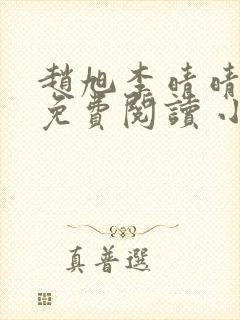 趙旭李晴晴
免費閱讀小
真普選